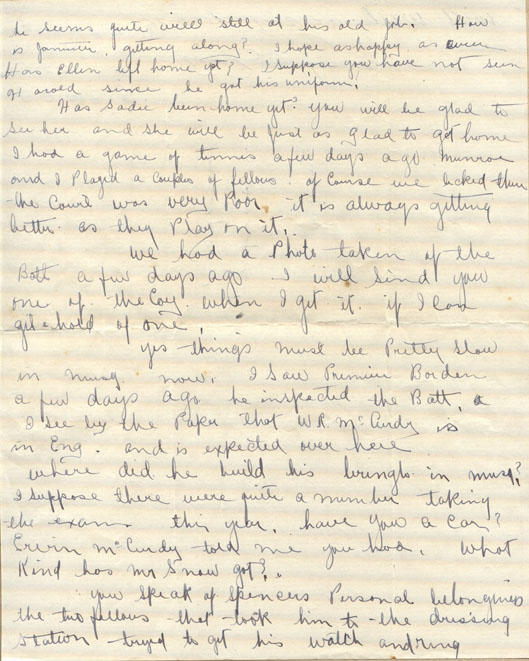 he seems quite well still at his old job. How
is Jammie getting along? I hope as happy as ever
Has Ellen left home yet? I suppose you have not seen
since he got his uniform.
Has Sadie been home yet? you will be glad to
see her and she will be just as glad to get home
I had a game of tennis a few days ago. Munroe
and I Played a Couple of fellows. of Course we licked them
the Court was very Poor it is always getting
better as they Play on it.
We had a Photo taken of the
Batt a few days ago I will send you
one of the Coy. when I get it. if I can
get a hold of one.
yes things must be Pretty slow
in musq. now. I saw Premier Borden
a few days ago he inspected the Batt,
I see by the Paper that W.R. McCurdy is
in Eng. and is expected over here
where did he build his bunglo. in musq?
I suppose there were quite a number taking
the exams this year. have you a Car?
Ervin McCurdy told me you had. What
Kind has mr Snow got?.
you speak of Spencers Personal belongings
the two fellows that took him to the dressing
station tryed to get his watch and ring